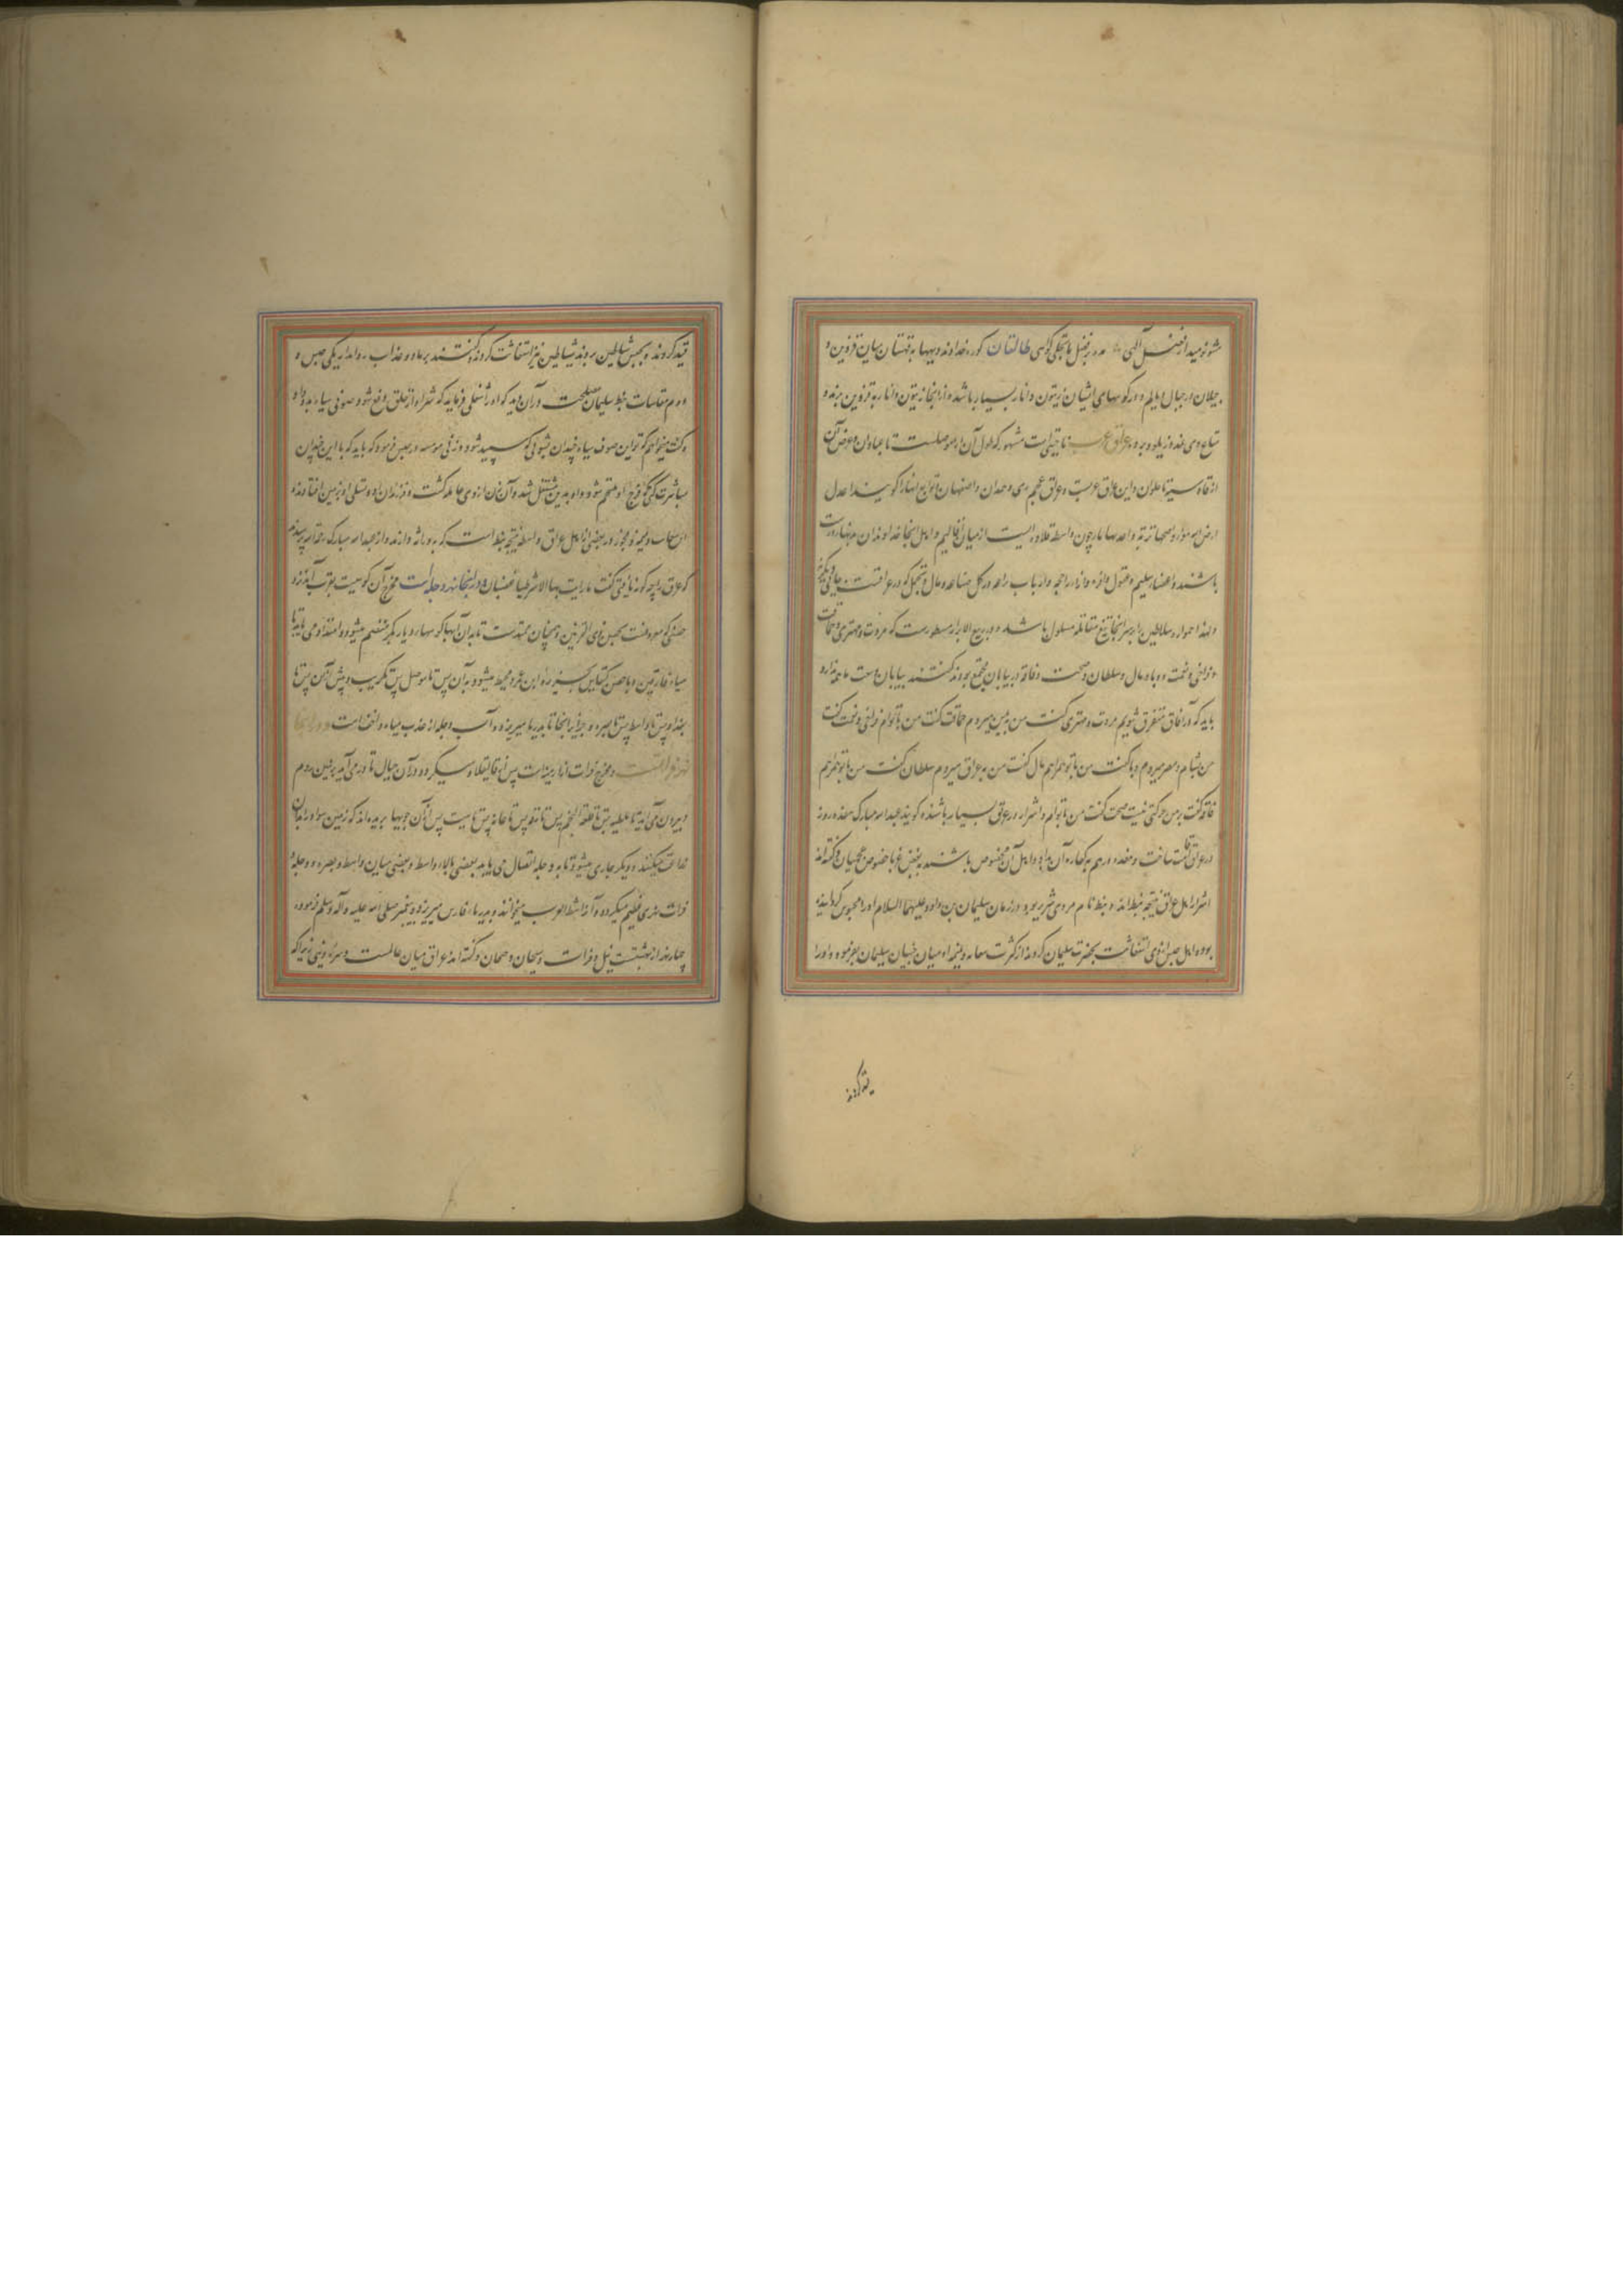 شو نومید از فضل آلهی طالقان کوره خداوند دیهها به قهستان میان قزوین و
جیلان در جبال دیلم و در کوههای ایشان زیتون و انار بسیار باشد و از آنجا زیتون و انار به قزوین برند و
عراق عرب ناحیتی است مشهور که طول آن از موصلست تا عبادان و عرض آن
از قادسیه تا حلوان و این عراق عربست و عراق عجم ری و همدان و اصفهان و توابع اینها را گویند اعدل
ارض الله هواء و اصحها تربة و اعذبها ماء چون واسطه قلاده ایست از میان اقالیم و اهل آنجا خداوندان
باشند و اعضاء سلیم و عقول وافره و اراء راجحه و ارباب براعه در کل صناعه
و لهذا همواره سلاطین را بر سر آنجا تیغ مقاتله مسلول باشد و در ربیع الابرار مسطورست که مروت و مهتری و حماقت
و فراخی و نعمت و وبا و مال و سلطان و صحت و فاقه در بیابان مجتمع بودند گفتند بیابان وسعت ما همه ندارد
باید که در آفاق متفرق شویم مروت و مهتری گفت من به یمن میروم حماقت گفت من با توام فراخی و نعمت گفت
من بشام و مصر میروم وبا گفت من با تو همراهم مال گفت من به عراق میروم سلطان گفت من با تو همراهم
فاقه گفت بر من حرکتی نیست صحت گفت من با توام و اشرار در عراق بسیار باشند گویند عبدالله مبارک هفده روز
در عراق اقامت ساخت و هفده درهم به کفاره آن بداد و اهل آن مخصوص باشند به بغض غربا خصوص عجمیان و گفته‌اند
اشرار اهل عراق نتیجه نبط اند و نبط نام مردی شریر بود و در زمان سلیمان بن داود علیهما السلام او را محبوس گردانیده
بود و اهل حبس از وی استغاثت بحضرت سلیمان کردند از کثرت سعایه و نمیمه او میان حبسیان سلیمان بفرمود و او را
قید کردند
قید کردند و بحبس شیاطین بردند شیاطین نیز استغاثت کردند و گفتند بر ما دو عذاب روا مدار یکی حبس و
دوم مقاسات نبط سلیمان مصلحت در آن دید که او را شغلی فرماید که شر او از خلق دفع شود صوفی سیاه بدو داد
و گفت میخواهم که تو این صوف سیاه چندان بشوئی که سپید شود و زنی مومسه در حبس فرمود که باید که با این خوان
مباشرت کنی و او بدین مشتغل شد و آن زن از وی حامله گشت و فرزندان زاد و نسلی از او بر زمین افتادند
در بعضی از اهل عراق واسطه نتیجه نبط است که بوراثه دارند و از عبدالله مبارک رحمه الله پرسیدند
که عراق را چگونه یافتی گفت ما رایت بها الا شرطیا غضبان و در آنجا نهر دجله است مخرج آن کوهیست بقرب آمد نزد
حصنی که معروفست بحصن ذی القرنین و همچنان ممتدست تا بدان آبها کوهها و دیار بکر منضم میشود و امتداد می یابد تا
میافارقین و با حصن کیفا پس بجزیره ابن عمر و محیط میشود به آن پس تا موصل پس تکریت و پیش از آن پس تا
بغداد و پس تا واسط پس تا بصره و جزایر آنجا تا بدریا میریزد و آب دجله از عذب میاه و انفع است و در آنجا
نهر فرات است و مخرج فرات از ارمینیه است پس از قالیقلا و سیگردد در آن جبال تا در می آید بزمین روم
و بیرون می آید تا ملطیه پس تا قلعه نجم پس تا رقه پس تا عانه پس تا هیت پس از آن جویها بریده‌اند که زمین سواد را بدان
میکنند و دیگر جاری میشود تا به دجله اتصال می یابد بعضی بالاء واسط و بعضی میان واسط و بصره و دجله
فرات نهری عظیم میگردد و آنرا شط العرب میخوانند و بدریاء فارس میریزد و پیغمبر صلی الله علیه و آله وسلم فرموده
چهار نهر از بهشتست نیل و فرات و سیحان و جیحان و گفته‌اند عراق میان عالمست